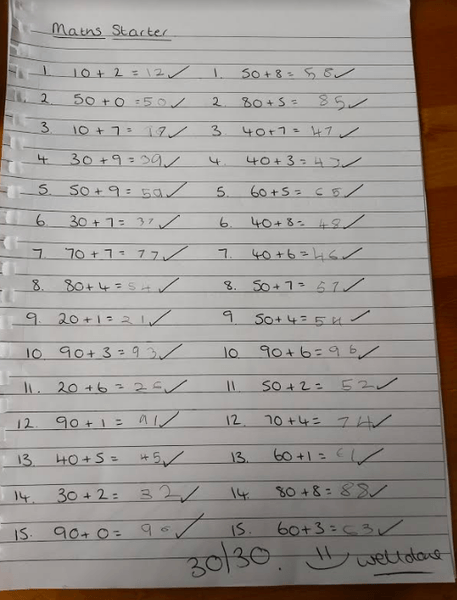 Maths Starter
1. 10 + 2 = 12 ✓ 1. 50 + 8 = 58 ✓
2. 50 + 0 = 50 ✓ 2. 80 + 5 = 85 ✓
3. 10 + 7 = 17 ✓ 3. 40 + 7 = 47 ✓
4. 30 + 9 = 39 ✓ 4. 40 + 3 = 43 ✓
5. 50 + 9 = 59 ✓ 5. 60 + 5 = 65 ✓
6. 30 + 7 = 37 ✓ 6. 40 + 8 = 48 ✓
7. 70 + 7 = 77 ✓ 7. 40 + 6 = 46 ✓
8. 80 + 4 = 84 ✓ 8. 50 + 7 = 57 ✓
9. 20 + 1 = 21 ✓ 9 50 + 4 = 54 ✓
10. 90 + 3 = 93 ✓ 10 90 + 6 = 96 ✓
11. 20 + 6 = 26 ✓ 11. 50 + 2 = 52 ✓
12. 90 + 1 = 91 ✓ 12. 70 + 4 = 74 ✓
13. 40 + 5 = 45 ✓ 13. 60 + 1 = 61 ✓
14. 30 + 2 = 32 ✓ 14. 80 + 8 = 88 ✓
15. 90 + 0 = 90 ✓ 15. 60 + 3 = 63 ✓
30/30. welldone